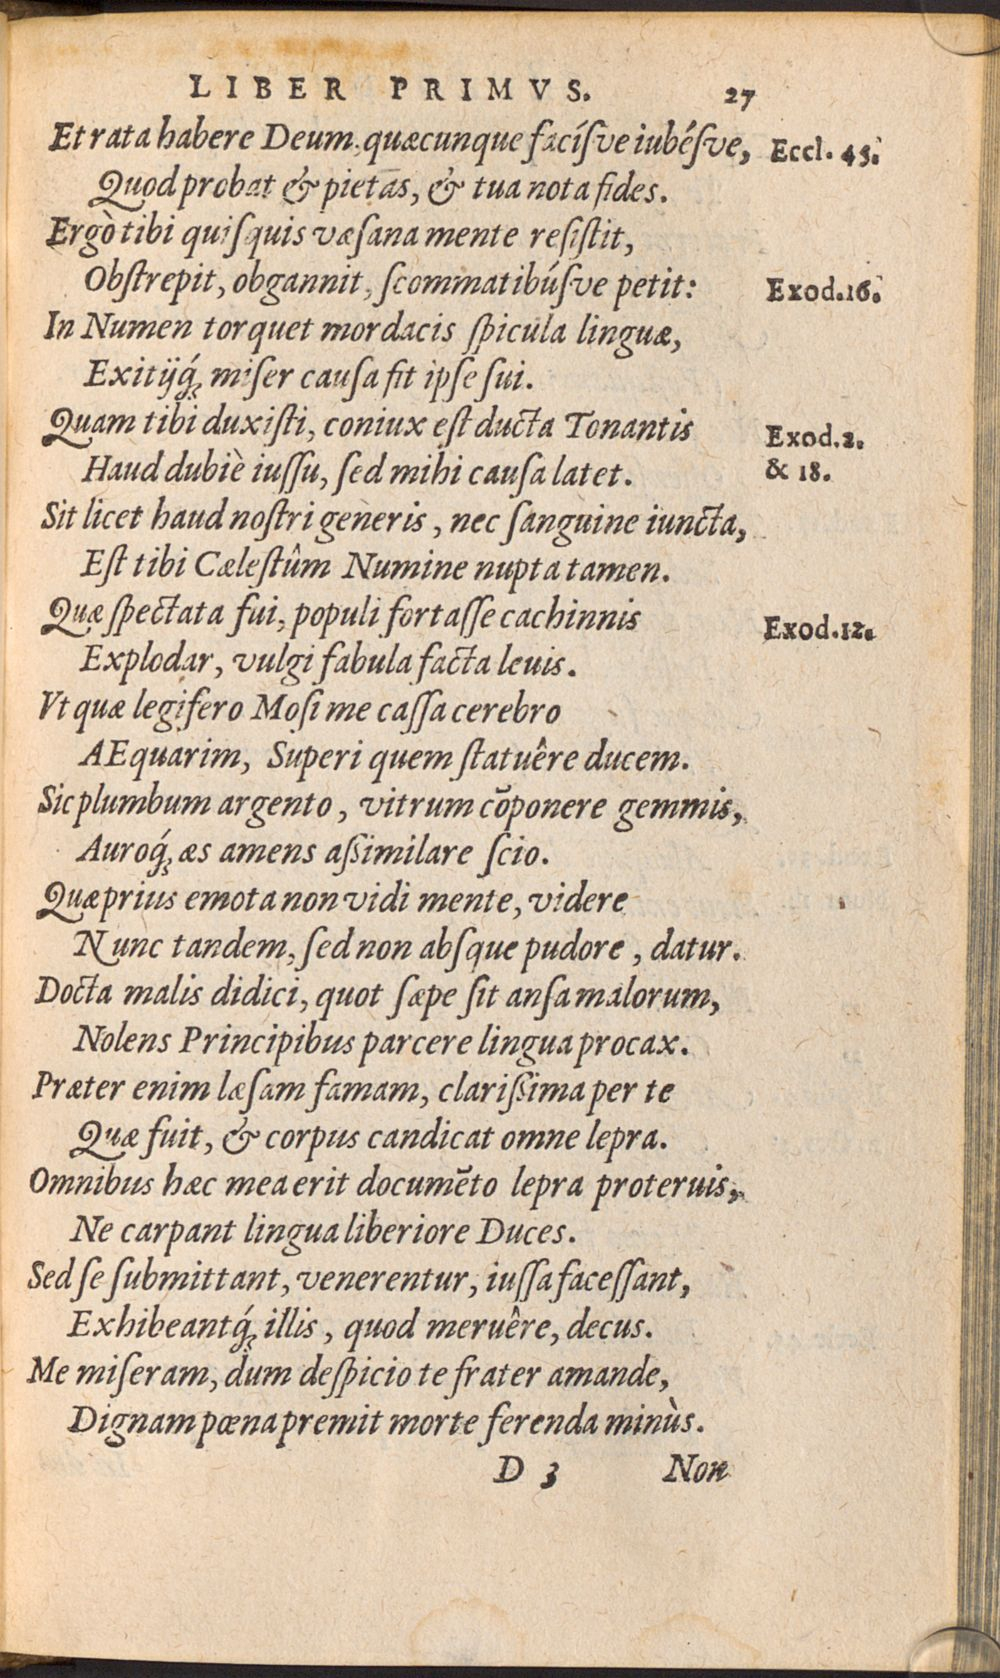 LIBER PRIMVS. 27
Et rata habere Deum, quæcunque facíſve iubéſve, Eccl. 45.
Quod probat & pietas, & tua nota fides.
Ergò tibi quiſquis væſana mente reſiſtit,
Obſtrepit, obgannit, ſcommatibúſve petit: Exod.16.
In Numen torquet mordacis ſpicula linguæ,
Exitijq́; miſer cauſa fit ipſe ſui.
Quam tibi duxiſti, coniux eſt ducta Tonantis Exod.2.
Haud dubiè iuſſu, ſed mihi cauſa latet. & 18.
Sit licet haud noſtri generis, nec ſanguine iuncta,
Eſt tibi Cæleſtûm Numine nupta tamen.
Quæ ſpectata fui, populi fortaſſe cachinnis Exod.12.
Explodar, vulgi fabula facta leuis.
Vt quæ legifero Moſi me caſſa cerebro
AEquarim, Superi quem ſtatuêre ducem.
Sic plumbum argento, vitrum cōponere gemmis,
Auroq́; æs amens aſsimilare ſcio.
Quæ prius emota non vidi mente, videre
Nunc tandem, ſed non abſque pudore, datur.
Docta malis didici, quot ſæpe ſit anſa malorum,
Nolens Principibus parcere lingua procax.
Præter enim læſam famam, clariſsima per te
Quæ fuit, & corpus candicat omne lepra.
Omnibus hæc mea erit documēto lepra proteruis,
Ne carpant lingua liberiore Duces.
Sed ſe ſubmittant, venerentur, iuſſa faceſſant,
Exhibeantq́; illis, quod meruêre, decus.
Me miſeram, dum deſpicio te frater amande,
Dignam pœna premit morte ferenda minùs.
D 3 Non